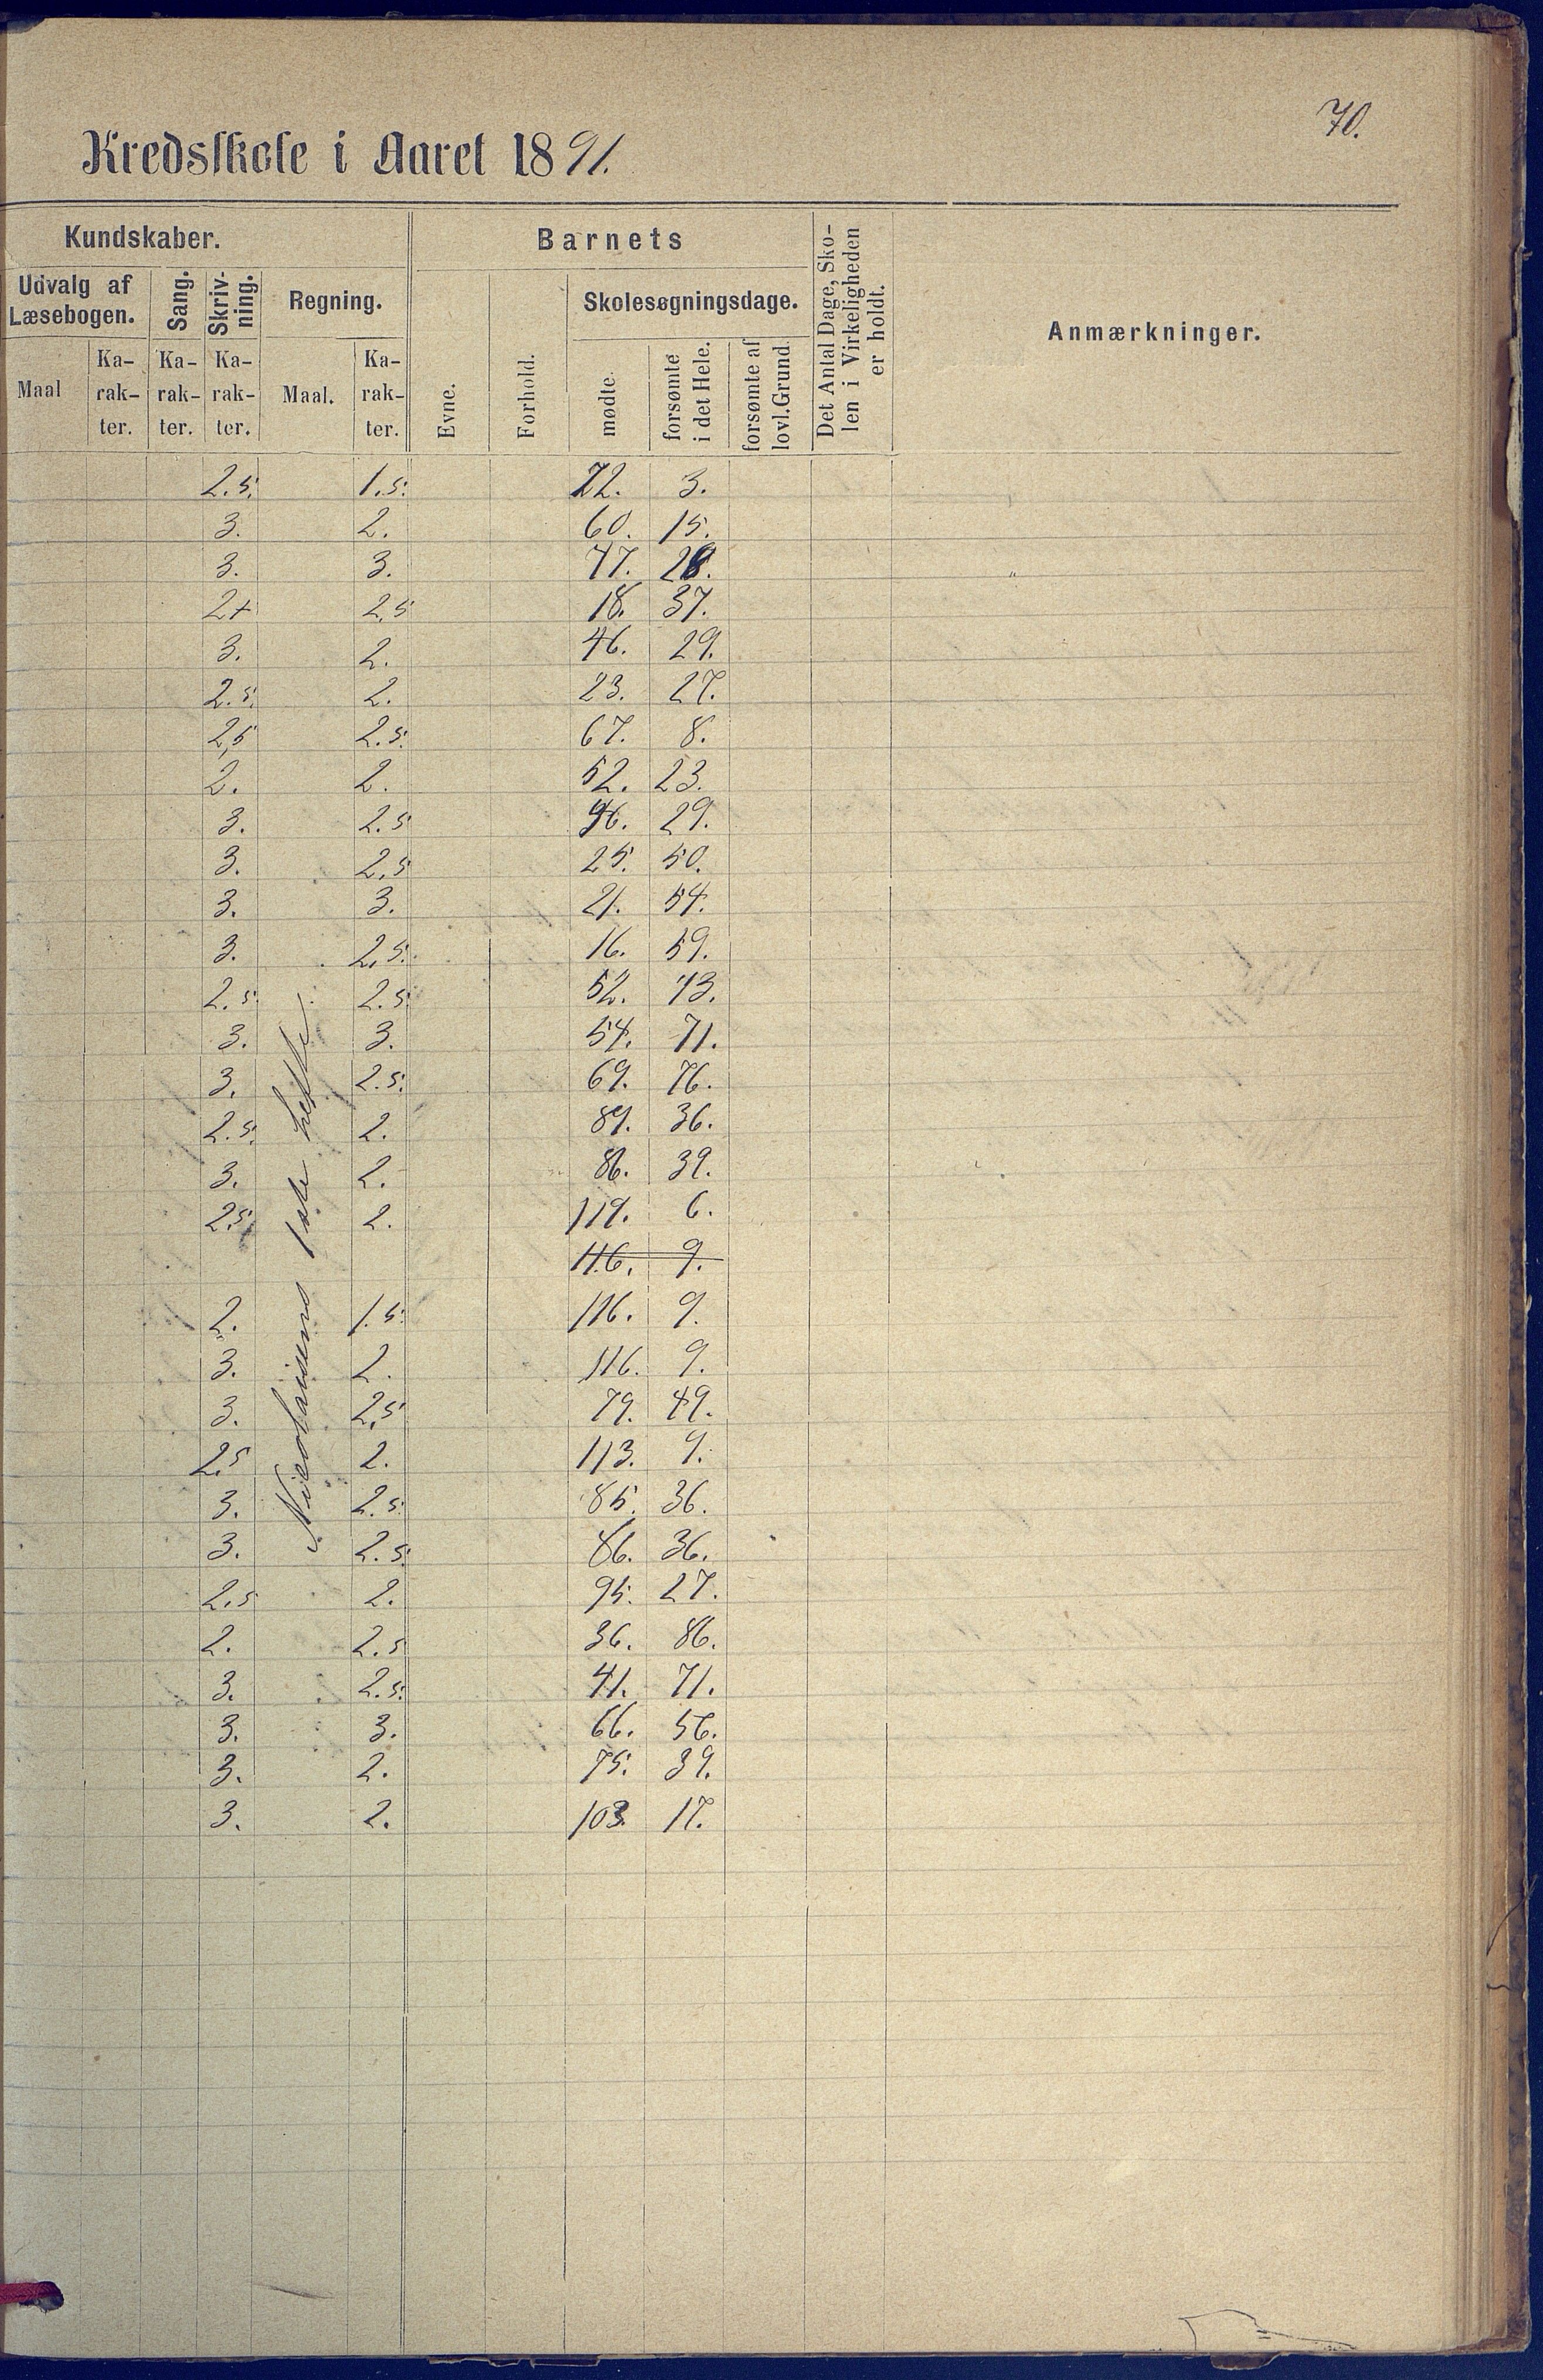 70.
Kredsskole i Aaret 1891.
Kundskaber. Barnets Det Antal Dage, Sko- len i Virkeligheden er holdt. Anmærkninger.
Udvalg af Læsebogen. Sang. Skriv- ning. Regning. Evne. Forhold. Skolesøgningsdage.
Maal Ka- rak- ter. Ka- rak- ter. Ka- rak- ter. Maal. Ka- rak- ter. mødte. forsømte i det Hele. forsømte af lovl. Grund.
2.5. 1.5. 72. 3.
3. 2. 60. 15.
3. 3. 47. 28.
2+ 2,5 18. 37.
3. 2. 46. 29.
2.5. 2. 23. 27.
2,5 2.5. 67. 8.
2. 2. 52. 23.
3. 2.5 46. 29.
3. 2,5 25. 50.
3. 3. 21. 54.
3. 2,5. 16. 59.
2.5. 2.5. 52. 73.
3. 3. 54. 71.
3. 2.5. 69. 76.
2.5. 2. 89. 36.
3. 2. 86. 39.
2,5. 2. 119. 6.
116. 9.
2. 1.5. 116. 9.
3. 2. 116. 9.
3. 2,5 79. 49.
2,5 2. 113. 9.
3. 2.5. 85. 36.
3. 2.5. 86. 36.
2.5 2. 95. 27.
2. 2.5 36. 86.
3. 2.5. 41. 71.
3. 3. 66. 56.
3. 2. 75. 39.
3. 2. 103. 17.
Nicolaisens 1ste hefte.